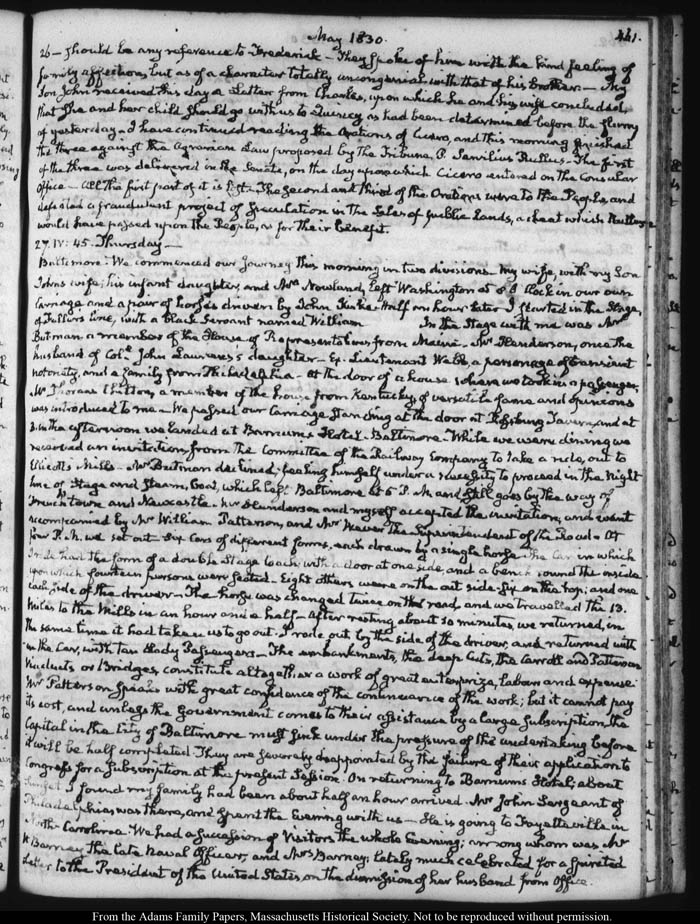 May 1830.
441.
26 - should be any reference to Frederick - They spoke of him with the kind feeling of
family affection, but as of a character totally uncongenial with that of his Brother. - My
Son John received this day a Letter from Charles, upon which he and his wife concluded
that she and her child should go with us to Quincy as had been determined before the flurry
of yesterday - I have continued reading the Orations of Cicero, and this morning finished
the three against the Agrarian Law proposed by the Tribune, P. Servilius Rullus - The first
of the three was delivered in the Senate, on the day upon which Cicero entered on the Consular
Office - All the first part of it is lost. The second and third of the Orations were to the People, and
defeated a fraudulent project of Speculation in the Sales of public Lands, a cheat which Rullus
would have passed upon the People, as for their benefit.
27. IV: 45. Thursday -
Baltimore. We commenced our Journey this morning in two divisions. My wife, with my Son
John's wife, his infant daughter, and Mrs Nowland, left Washington at 8 O'Clock in our own
Carriage and a pair of horses driven by John. Half an hour later I started in the Stage,
of Fuller's line, with a black Servant named William In the Stage with me was Mr
Butman a member of the House of Representatives from Maine - Mr Henderson, once the
husband of Coll. John Laurens's daughter - Ex-Lieutenant Webb, a personage of transient
notoriety, and a family from Philadelphia - At the door of a house where we took in a passenger,
Mr Thomas Chilton, a member of the house from Kentucky, of versatile fame and opinions
was introduced to me - We passed our Carriage standing at the door at Rossburg Tavern, and at
in the afternoon we landed at Barnum's Hotel - Baltimore. While we were dining we
received an invitation from the Committee of the Railway Company to take a ride, out to
Ellicott's Mills - Mr Butman declined; feeling himself under a necessity to proceed in the Night
line of Stage and Steam, boat, which left Baltimore at 5 P.M. and still goes by the way of
French town and Newcastle. Mr Henderson and myself accepted the invitation, and went
accompanied by Mr William Patterson, and Mr Weaver the Superintendent of the Road - At
four P.M. we set out - Six Cars of different forms, each drawn by a single horse - The Car in which
I rode had the form of a double Stage Coach with a door at one side, and a bench round the inside
upon which fourteen persons were seated - Eight others were on the out side - Six on the top; and one
each side of the driver - The horse was changed twice on the road, and we travelled the 13.
miles to the Mills in an hour and a half - After resting about 10 minutes, we returned, in
the same time it had taken us to go out. I rode out by the side of the driver, and returned with
in the Car, with ten Lady Passengers. The embankments, the deep Cuts, the Carroll and Patterson
Viaducts or Bridges, constitute altogether a work of great enterprize, labour and expense.
Mr Patterson speaks with great confidence of the continuance of the work; but it cannot pay
its cost, and unless the Government comes to their assistance by a large subscription, the
Capital in the City of Baltimore must sink under the pressure of the undertaking before
it will be half completed. They are severely disappointed by the failure of their application to
Congress for a Subscription at the present Session. On returning to Barnum's Hotel, about
Sunset I found my family had been about half an hour arrived. Mr John Sergeant of
Philadelphia, was there, and spent the Evening with us - He is going to Fayetteville in
North-Carolina. We had a succession of Visitors the whole Evening; among whom was Mr
Barney the late Naval Officer, and Mrs Barney; lately much celebrated for a spirited
Letter to the President of the United States on the dismission of her husband from Office.
From the Adams Family Papers, Massachusetts Historical Society. Not to be reproduced without permission.